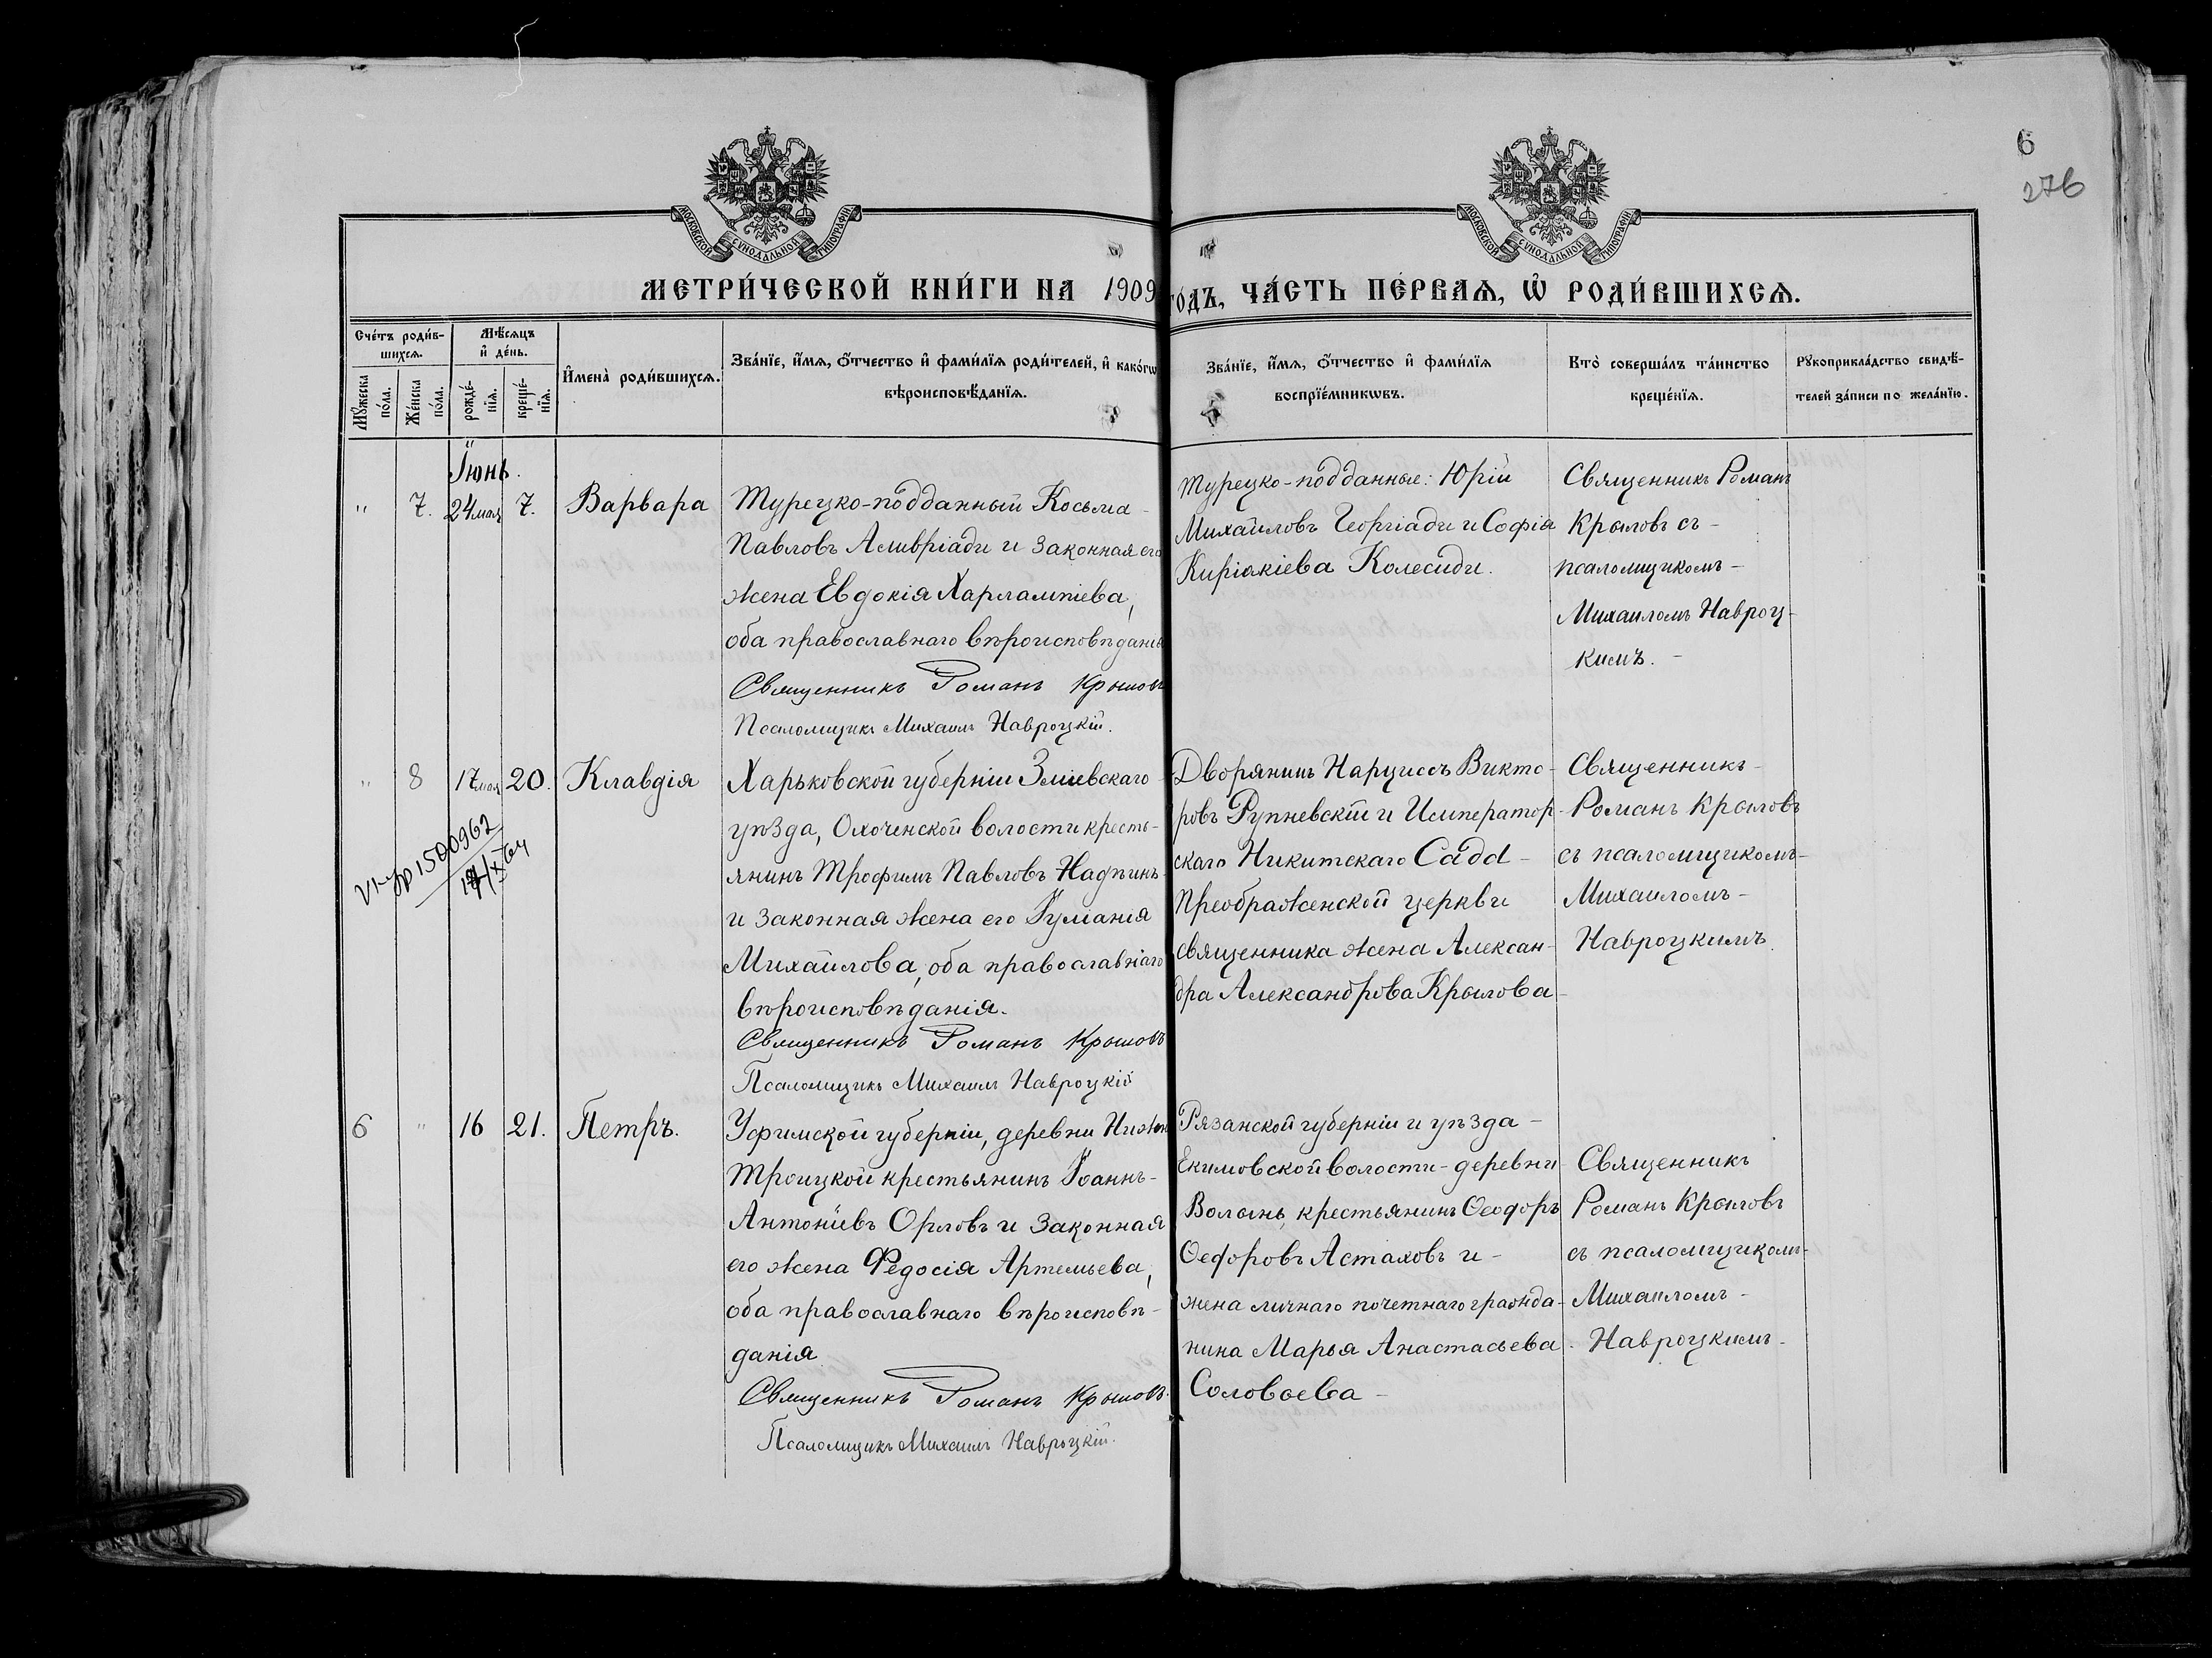 6
276
МОСКОВСКОЙ СѴНОДАЛЬНОЙ ТИПОГРАФІИ
МОСКОВСКОЙ СѴНОДАЛЬНОЙ ТИПОГРАФІИ
МЕТРИ́ЧЕСКОЙ КНИ́ГИ НА 1909 го́дъ, ЧА́СТЬ ПЕ́РВАѦ, Ѡ҆ РОДИ́ВШИХСѦ.
Сче́тъ роди́в-
шихсѧ.
Мꙋ́жеска по́ла.
Же́нска по́ла.
Мѣ́сѧцъ
и҆ де́нь.
рожде́-
нїѧ.
креще́-
нїѧ.
И҆мена̀ роди́вшихсѧ.
Зва́нїе, и҆́мѧ, ѻ҆́тчество и҆ фами́лїѧ роди́телей, и҆ како́гѡ
вѣроисповѣ́данїѧ.
Зва́нїе, и҆́мѧ, ѻ҆́тчество и҆ фами́лїѧ
воспрїе́мникѡвъ.
Кто̀ соверша́лъ та́инство
креще́нїѧ.
Рꙋкоприкла́дство свидѣ́-
телей за́писи по жела́нїю.
Іюнь.
" 7. 24 мая 7. Варвара
Турецко-подданный Косьма
Павловъ Асивріади и законная его
жена Евдокія Харлампіева,
оба православнаго вѣроисповѣданія
Священникъ Романъ Крыловъ
Псаломщикъ Михаилъ Навроцкій.
Турецко-подданные: Юрій
Михайловъ Георгіади и Софія
Киріакіева Колесиди.
Священникъ Романъ
Крыловъ съ -
псаломщикомъ -
Михаиломъ Навроц-
кимъ. -
" 8 17 мая 20. Клавдія
1500962
Харьковской губерніи Зміевскаго
уѣзда, Охоченской волости кресть-
янинъ Трофимъ Павловъ Надѣинъ
и законная жена его Іуліанія
Михайлова, оба православнаго
вѣроисповѣданія.
Священникъ Романъ Крыловъ
Псаломщикъ Михаилъ Навроцкій
Дворянинъ Нарциссъ Викто-
ровъ Рупневскій и Император-
скаго Никитскаго Сада -
Преображенской церкви
священника жена Алексан-
дра Александрова Крылова
Священникъ -
Романъ Крыловъ
съ псаломщикомъ -
Михаиломъ -
Навроцкимъ.
6 " 16 21. Петръ.
Уфимской губерніи, деревни Нижн
Троицкой крестьянинъ Іоаннъ -
Антоніевъ Орловъ и законная
его жена Федосія Артемьева,
оба православнаго вѣроисповѣ-
данія
Священникъ Романъ Крыловъ.
Псаломщикъ Михаилъ Навроцкій.
Рязанской губерніи и уѣзда -
Екимовской волости - деревни
Волынь, крестьянинъ Ѳеодоръ
Ѳедоровъ Астаховъ и -
жена личнаго почетнаго гражда-
нина Марья Анастасьева
Соловьева -
Священникъ
Романъ Крыловъ
съ псаломщикомъ -
Михаиломъ -
Навроцкимъ -